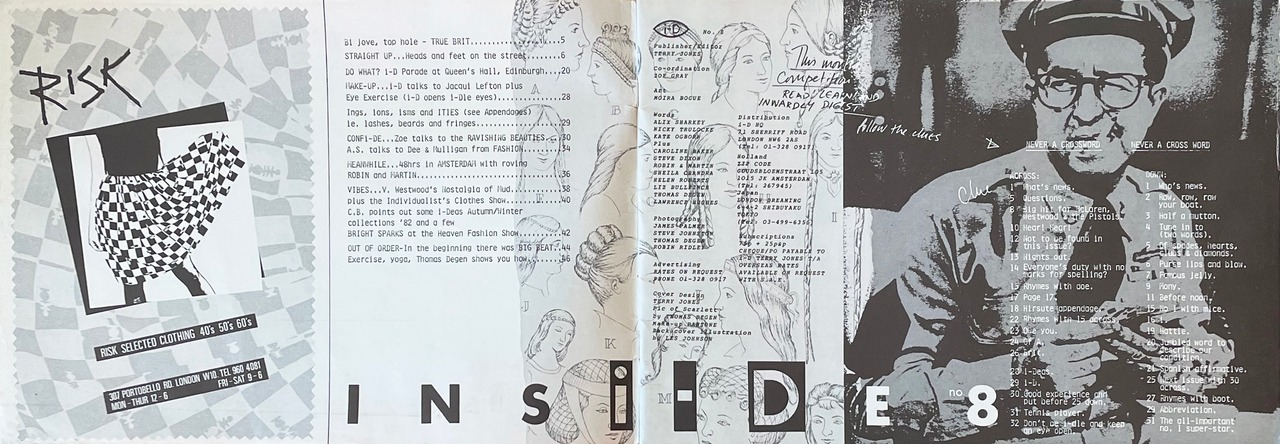 RISK
RISK SELECTED CLOTHING 40's 50's 60's
307 PORTOBELLO RD. LONDON W10. TEL 960 4081
MON - THUR 12 - 6 FRI - SAT 9 - 6
Bi jove, top hole - TRUE BRIT...............5
STRAIGHT UP...Heads and feet on the street...............6
DO WHAT? i-D Parade at Queen's Hall, Edinburgh....20
MAKE-UP...i-D talks to Jacqui Lefton plus
Eye Exercise (i-D opens i-Die eyes)...............28
Ings, ions, isms and ITIES (see Appendages)
ie. lashes, beards and fringes...............29
CONFi-DE...Zoe talks to the RAVISHING BEAUTIES...30
A.S. talks to Dee & Mulligan from FASHION...............34
MEANWHILE...48hrs in AMSTERDAM with roving
ROBIN and MARTIN...............36
VIBES...V. Westwood's Nostalgia of Mud...............38
plus the Individualist's Clothes Show...............40
C.B. points out some i-Deas Autumn/Winter
collections '82 and a few
BRIGHT SPARKS at the Heaven Fashion Show...............42
OUT OF ORDER-In the beginning there was BIG BEAT..44
Exercise, yoga, Thomas Degen shows you how...............46
i-D No. 8
Publisher/Editor
TERRY JONES
Co-ordination
ZOE GRAY
Art
MOIRA BOGUE
Words
ALIX SHARKEY
NICKY TRULOCKE
KATE OGBORN
Plus
CAROLINE BAKER
STEVE DIXON
ROBIN & MARTIN
SHEILA CHANDRA
HELEN ROBERTS
LIZ BULLINGER
THOMAS DEGEN
LAWRENCE HUGHES
Photography
JAMES PALMER
STEVE JOHNSTON
THOMAS DEGEN
ROBIN RIDLEY
Advertising
RATES ON REQUEST
PHONE 01-328 0917
Cover Design
TERRY JONES
Pic of Scarlett
by THOMAS DEGEN
Make-up
Backcover illustration
by LES JOHNSON
This month
Competition
READ/LEARN AND
INWARDLY DIGEST
Distribution
i-D HQ
21 SHERRIFF ROAD
LONDON NW6 2AS
TEL: 01-328 0917
Holland
ZIP CODE
GOUDSBLOEMSTRAAT 105
1015 JK AMSTERDAM
(Tel: 267945)
Japan
LONDON DREAMING
SHIBUYAKU
TOKYO
(Tel: 03-499-6350)
Subscriptions
75p + 25p&p
CHEQUE/PO PAYABLE TO
i-D TERRY JONES T/A
OVERSEAS RATES
AVAILABLE ON REQUEST
WITH S.A.E.
follow the clues
NEVER A CROSSWORD NEVER A CROSS WORD
clue
ACROSS:
1 What's news.
5 Questions.
8 Big hit for McLaren,
Westwood & the Pistols.
10 Hear! Hear!
12 Not to be found in
this issue?
13 Nights out.
14 Everyone's duty with no
marks for spelling?
15 Rhymes with doe.
17 Page 17.
18 Hirsute appendage.
22 Rhymes with 15 across.
23 Owe you.
24 Of A.
26 Brit.
28 i-Deas.
29 i-D.
30 Good experience can
put before 25 down.
31 Tennis player.
32 Don't be i-dle and keep
an eye open.
DOWN:
1 Who's news.
2 Row, row, row
your boat.
3 Half a mutton.
4 Tune in to
(two words).
5 Of spades, hearts,
clubs & diamonds.
6 Purse lips and blow.
7 Famous jelly.
9 Mony.
11 Before noon.
15 No i with mice.
19 Hattie.
20 Jumbled word to
describe our
condition.
21 Spanish affirmative.
25 Next issue with 30
across.
27 Rhymes with boot.
29 Abbreviation.
31 The all-important
no. 1 super-star.
INSi-DE no 8